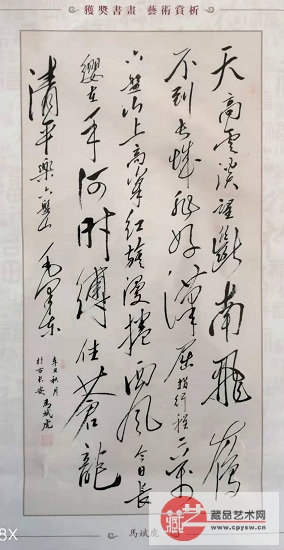 獲獎書畫 藝術賞析
天高雲淡望斷南飛雁
不到長城非好漢屈指行程二萬
六盤山上高峰紅旗漫捲西風今日長
纓在手何時縛住蒼龍
清平樂六盤山 毛澤東
辛丑秋月
於古長安 馬斌虎
馬斌虎
8X
藏艺
藏品艺术网
www.cpysw.cn